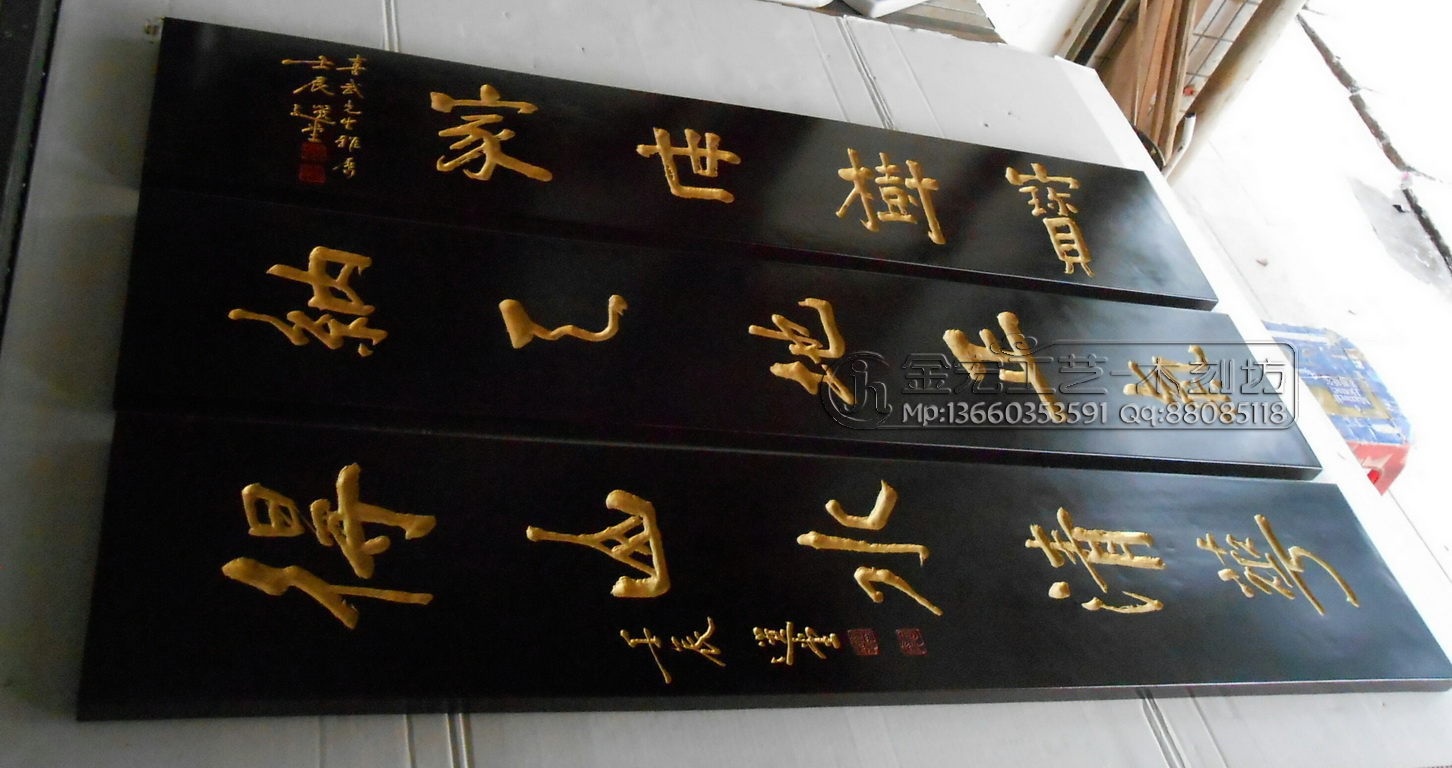 寶樹世家
武先生雅屬
壬辰選堂
納 地
得山水清
壬辰 選堂
金宏工艺-木刻坊
Mp:13660353591 QQ:88085118